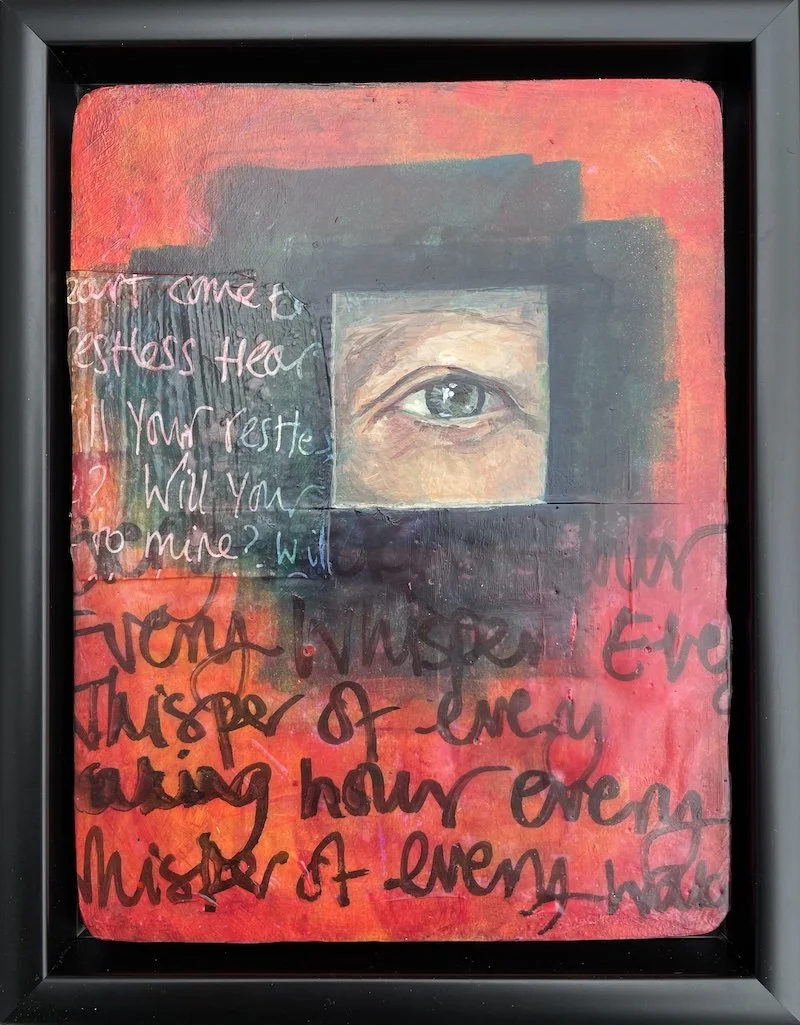 eart come to
restless Hear
ill Your restles
? Will Your
to mine? Wil
hour
Every Whisper Eve
Whisper of every
waking hour every
Whisper of every wak